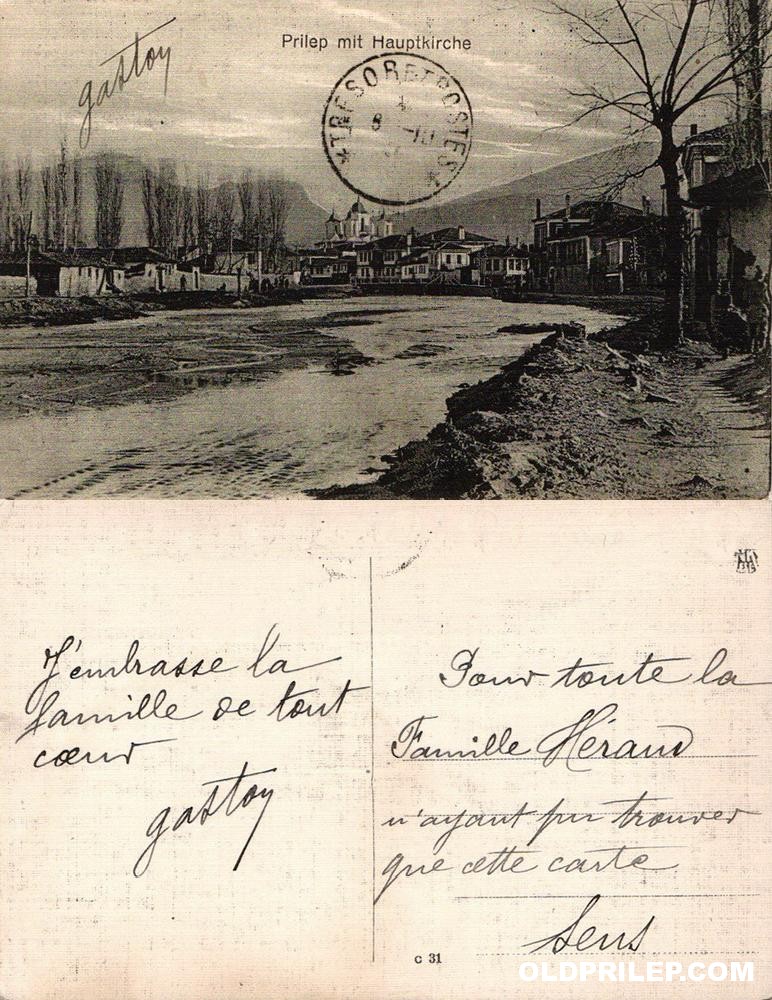 Prilep mit Hauptkirche
gastoy
TRESOR ET POSTES
8 -10
J'embrasse la
famille de tout
cœur
gastoy
Pour toute la
Famille Héraud
n'ayant pu trouver
que cette carte
Sens
c 31
OLDPRILEP.COM